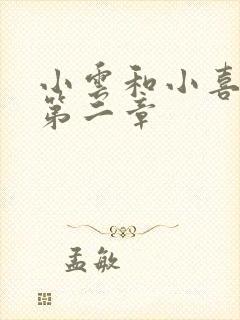 小雲和小喜
第二章
孟敏